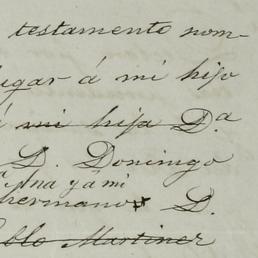 testamento nom-
lugar á mi hijo
mi hija D.a
D. Domingo
Ana y á mi
hermano D.
Pablo Martinez